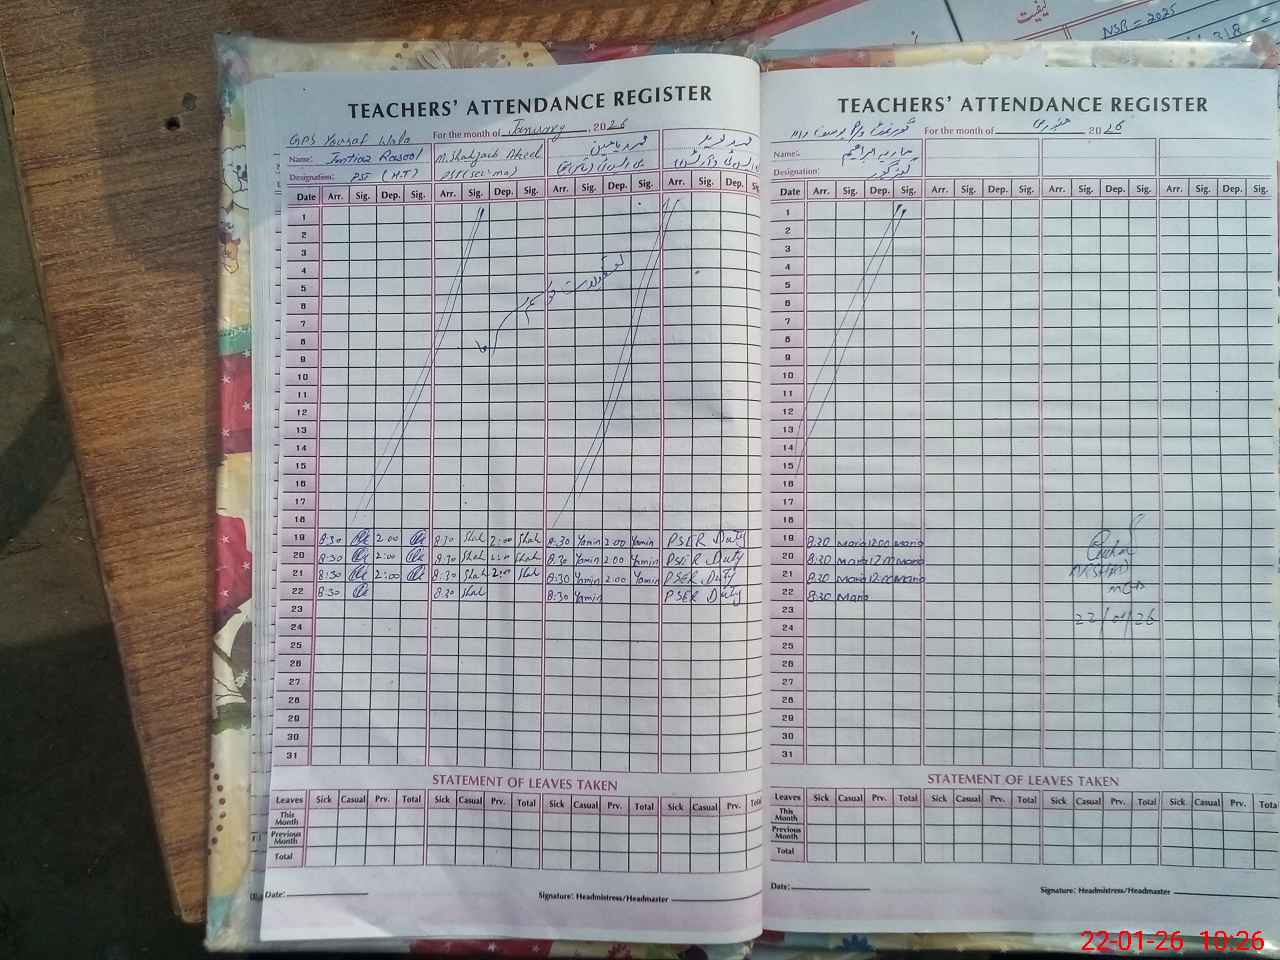 کیفیت
NSB = 2025
318
TEACHERS' ATTENDANCE REGISTER
GPS Yousaf Wala For the month of January, 2026
Name: Imtiaz Rasool M.Shahzaib Aqeel محمد یامین
Designation: PST (H.T)
Date Arr. Sig. Dep. Sig. Arr. Sig. Dep. Sig. Arr. Sig. Dep. Sig. Arr. Sig. Dep.
1
2
3
4
5
6
7
8
9
10
11
12
13
14
15
16
17
18
تعطیلات موسم سرما
19 8:30 2:00 8:30 Shah 2:00 Shah 8:30 Yamin 2:00 Yamin PSER Duty
20 8:30 2:00 8:30 Shah 2:00 Shah 8:30 Yamin 2:00 Yamin PSER Duty
21 8:30 2:00 8:30 Shah 2:00 Shah 8:30 Yamin 2:00 Yamin PSER Duty
22 8:30 8:30 Shah 8:30 Yamin PSER Duty
23
24
25
26
27
28
29
30
31
STATEMENT OF LEAVES TAKEN
Leaves Sick Casual Prv. Total Sick Casual Prv. Total Sick Casual Prv. Total Sick Casual Prv. Total
This Month
Previous Month
Total
Date: Signature: Headmistress/Headmaster
TEACHERS' ATTENDANCE REGISTER
گورنمنٹ For the month of جنوری 2026
Name: ماریہ ابراہیم
Designation:
Date Arr. Sig. Dep. Sig. Arr. Sig. Dep. Sig. Arr. Sig. Dep. Sig. Arr. Sig. Dep. Sig.
1
2
3
4
5
6
7
8
9
10
11
12
13
14
15
16
17
18
19 8:30 Maria 12:00 Maria
20 8:30 Maria 12:00 Maria
21 8:30 Maria 12:00 Maria
22 8:30 Maria
ARSHAD
MEA
22/01/26
23
24
25
26
27
28
29
30
31
STATEMENT OF LEAVES TAKEN
Leaves Sick Casual Prv. Total Sick Casual Prv. Total Sick Casual Prv. Total Sick Casual Prv. Tota
This Month
Previous Month
Total
Date: Signature: Headmistress/Headmaster
22-01-26 10:26